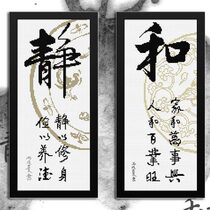 静
静以修身
俭以养德
和
家和萬事興
人和百業旺